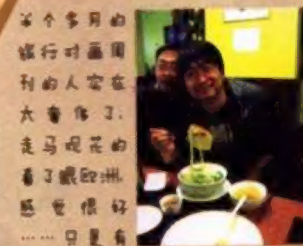 半个多月的
旅行对画周
刊的人实在
太奢侈了，
走马观花的
看了眼欧洲，
感觉很好
……只是有